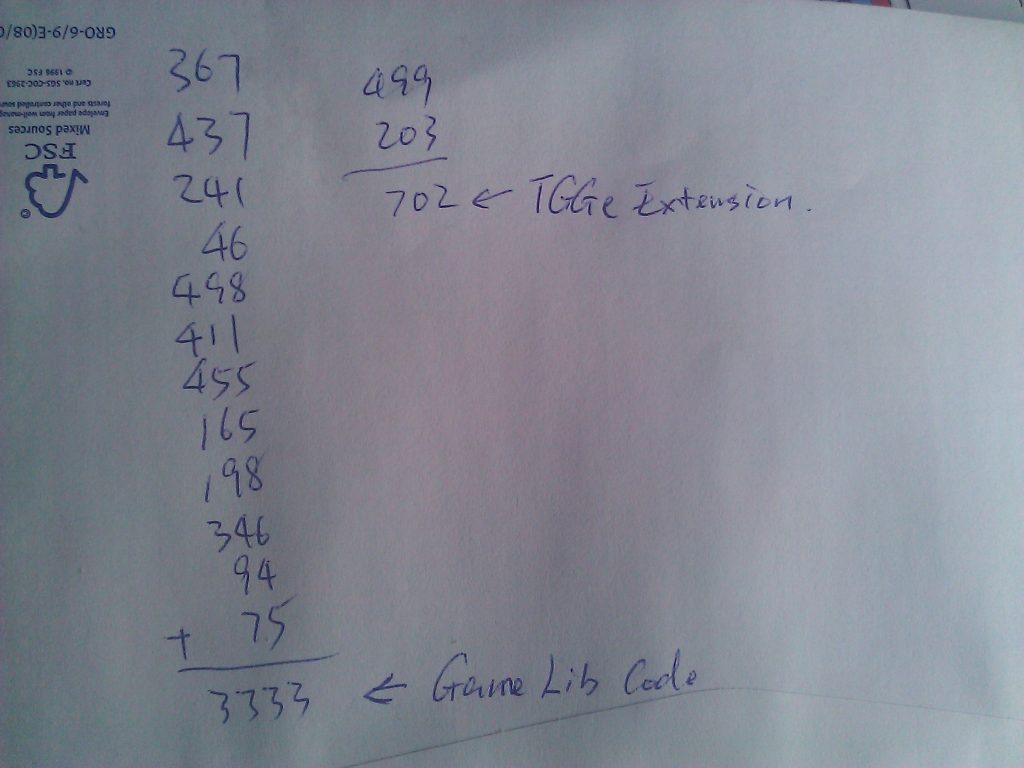 367
437
241
46
498
411
455
165
198
346
94
+ 75
3333 ← Game Lib Code
499
203
702 ← TGGe Extension.
FSC
Mixed Sources
Envelope paper from well-manag
forests and other controlled sour
Cert no. SGS-COC-2963
© 1996 FSC
GRO-6/9-E(08/0